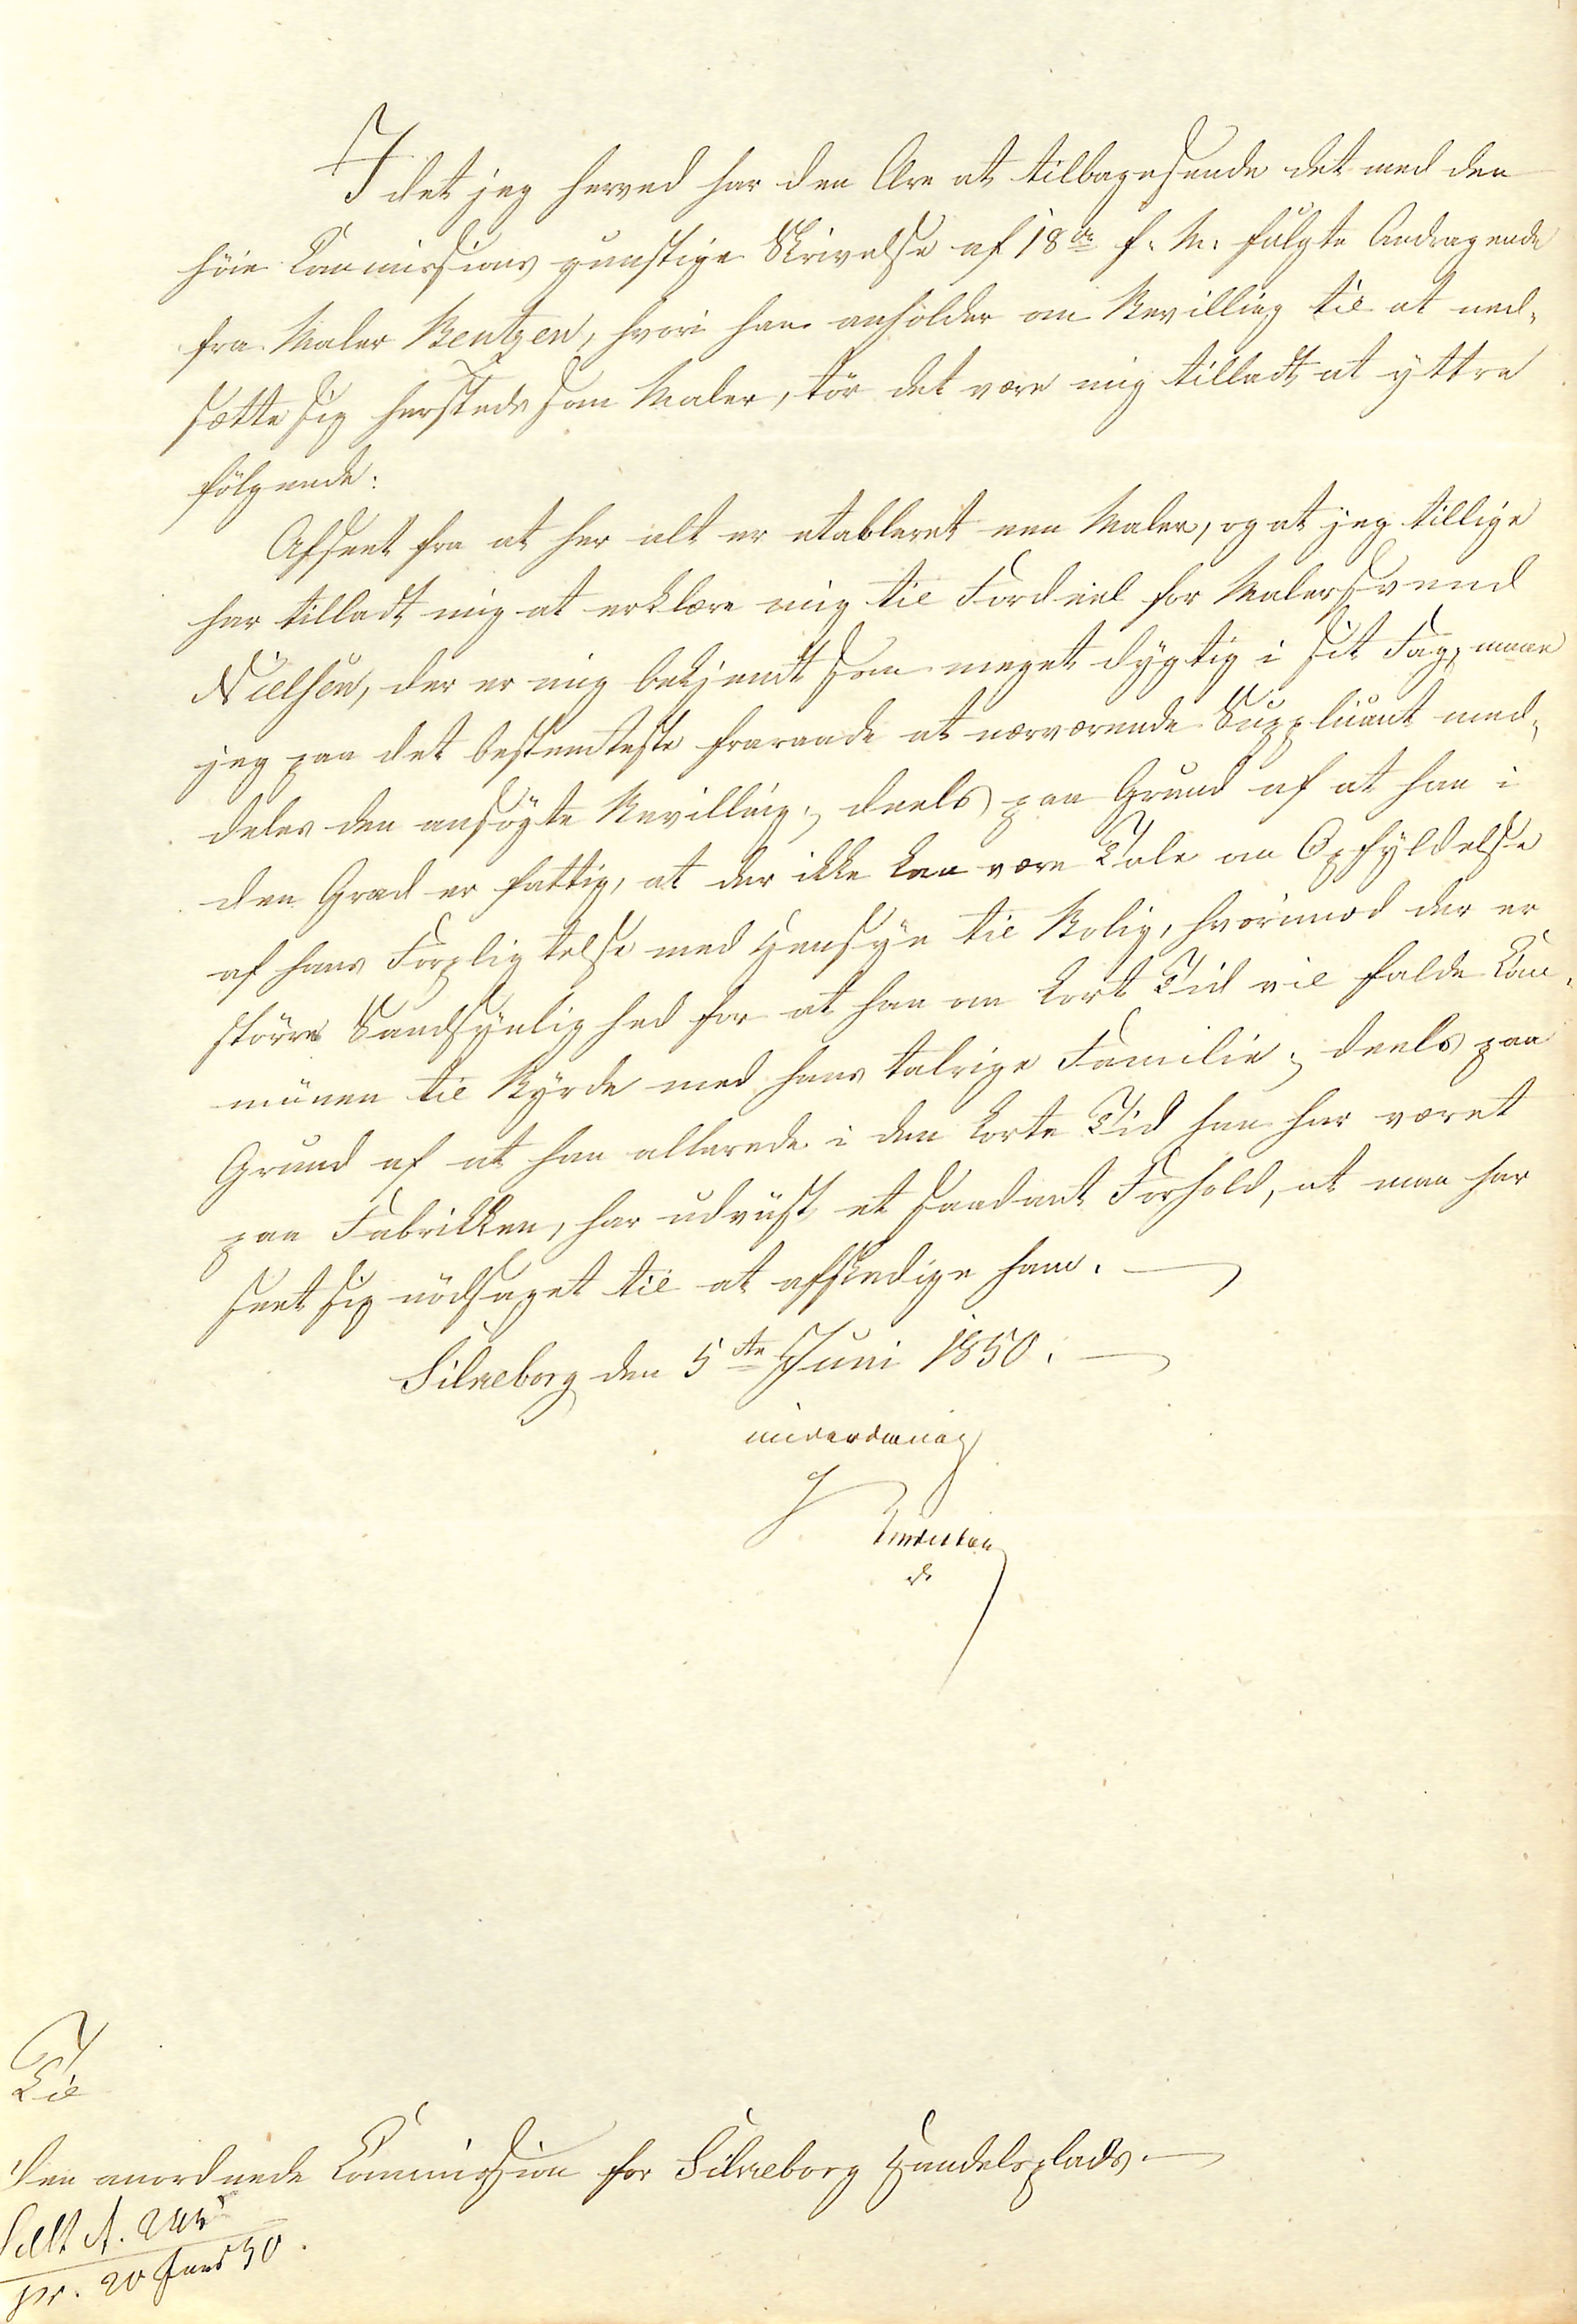 I det jeg herved har den Ære at tilbagesende det med den
höie Commissions gunstige Skrivelse af 18de f. M. fulgte Andragende
fra Maler Bentzen, hvori han anholder om Bevilling til at ned-
sætte sig hersteds som Maler, tör det være mig tilladt at yttre
fölgende:
Afseet fra at her alt er etableret een Maler, og at jeg tillige
har tilladt mig at erklære mig til Fordeel for Malersvend
Nielsen, der er mig bekjendt som meget dygtig i sit Fag, maae
jeg paa det bestemteste fraraade at nærværende Supplicant med-
deles den ansögte Bevilling; deels paa Grund af at han i
den Grad er fattig, at der ikke kan være Tale om Opfyldelse
af hans Forpligtelse med Hensyn til Bolig, hvorimod der er
större Sandsynlighed for at han om kort Tid vil falde Com-
munen til Byrde med hans talrige Familie; deels paa
Grund af at han allerede i den korte Tid han har været
paa Fabrikken, har udviist et saadant Forhold, at man har
seet sig nödsaget til at afskedige ham.
Silkeborg den 5te Juni 1850.
underdanig
Til
Den anordnede Commission for Silkeborg Handelsplads.
pr. 20 Juni 50.